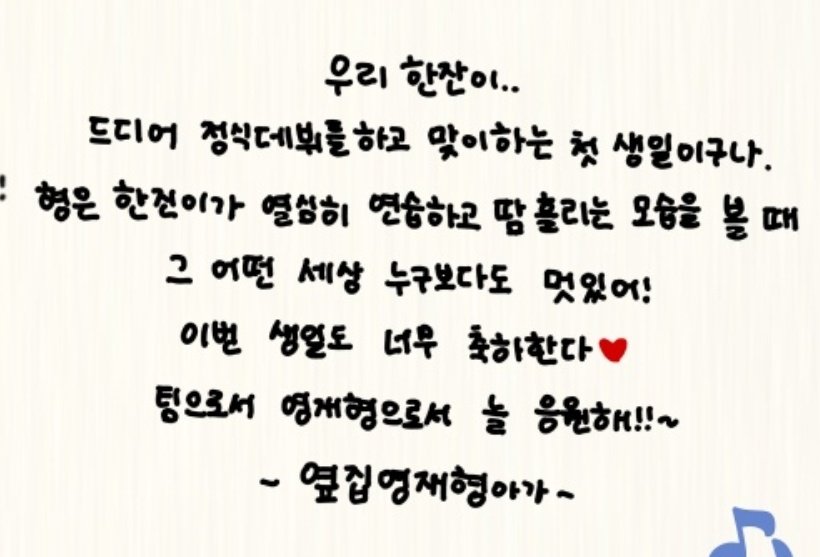 우리 한잔이..
드디어 정식데뷔를하고 맞이하는 첫 생일이구나.
! 형은 한진이가 열심히 연습하고 땀 흘리는 모습을 볼 때
그 어떤 세상 누구보다도 멋있어!
이번 생일도 너무 축하한다♥
팀으로서 영재형으로서 늘 응원해!!~
~ 옆집영재형아가~